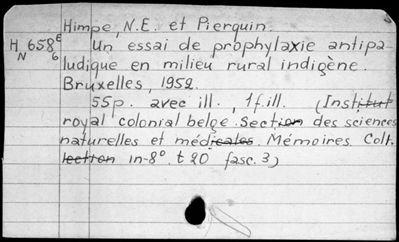 Himpe, N.E. et Pierquin.
H 658 E
N 6
Un essai de prophylaxie antipa-
ludique en milieu rural indigène.
Bruxelles, 1952.
55p. avec ill., 1f. ill. (Institut
royal colonial belge. Section des sciences
naturelles et médicales. Mémoires. Coll.
lection in-8°. t 20 fasc. 3)